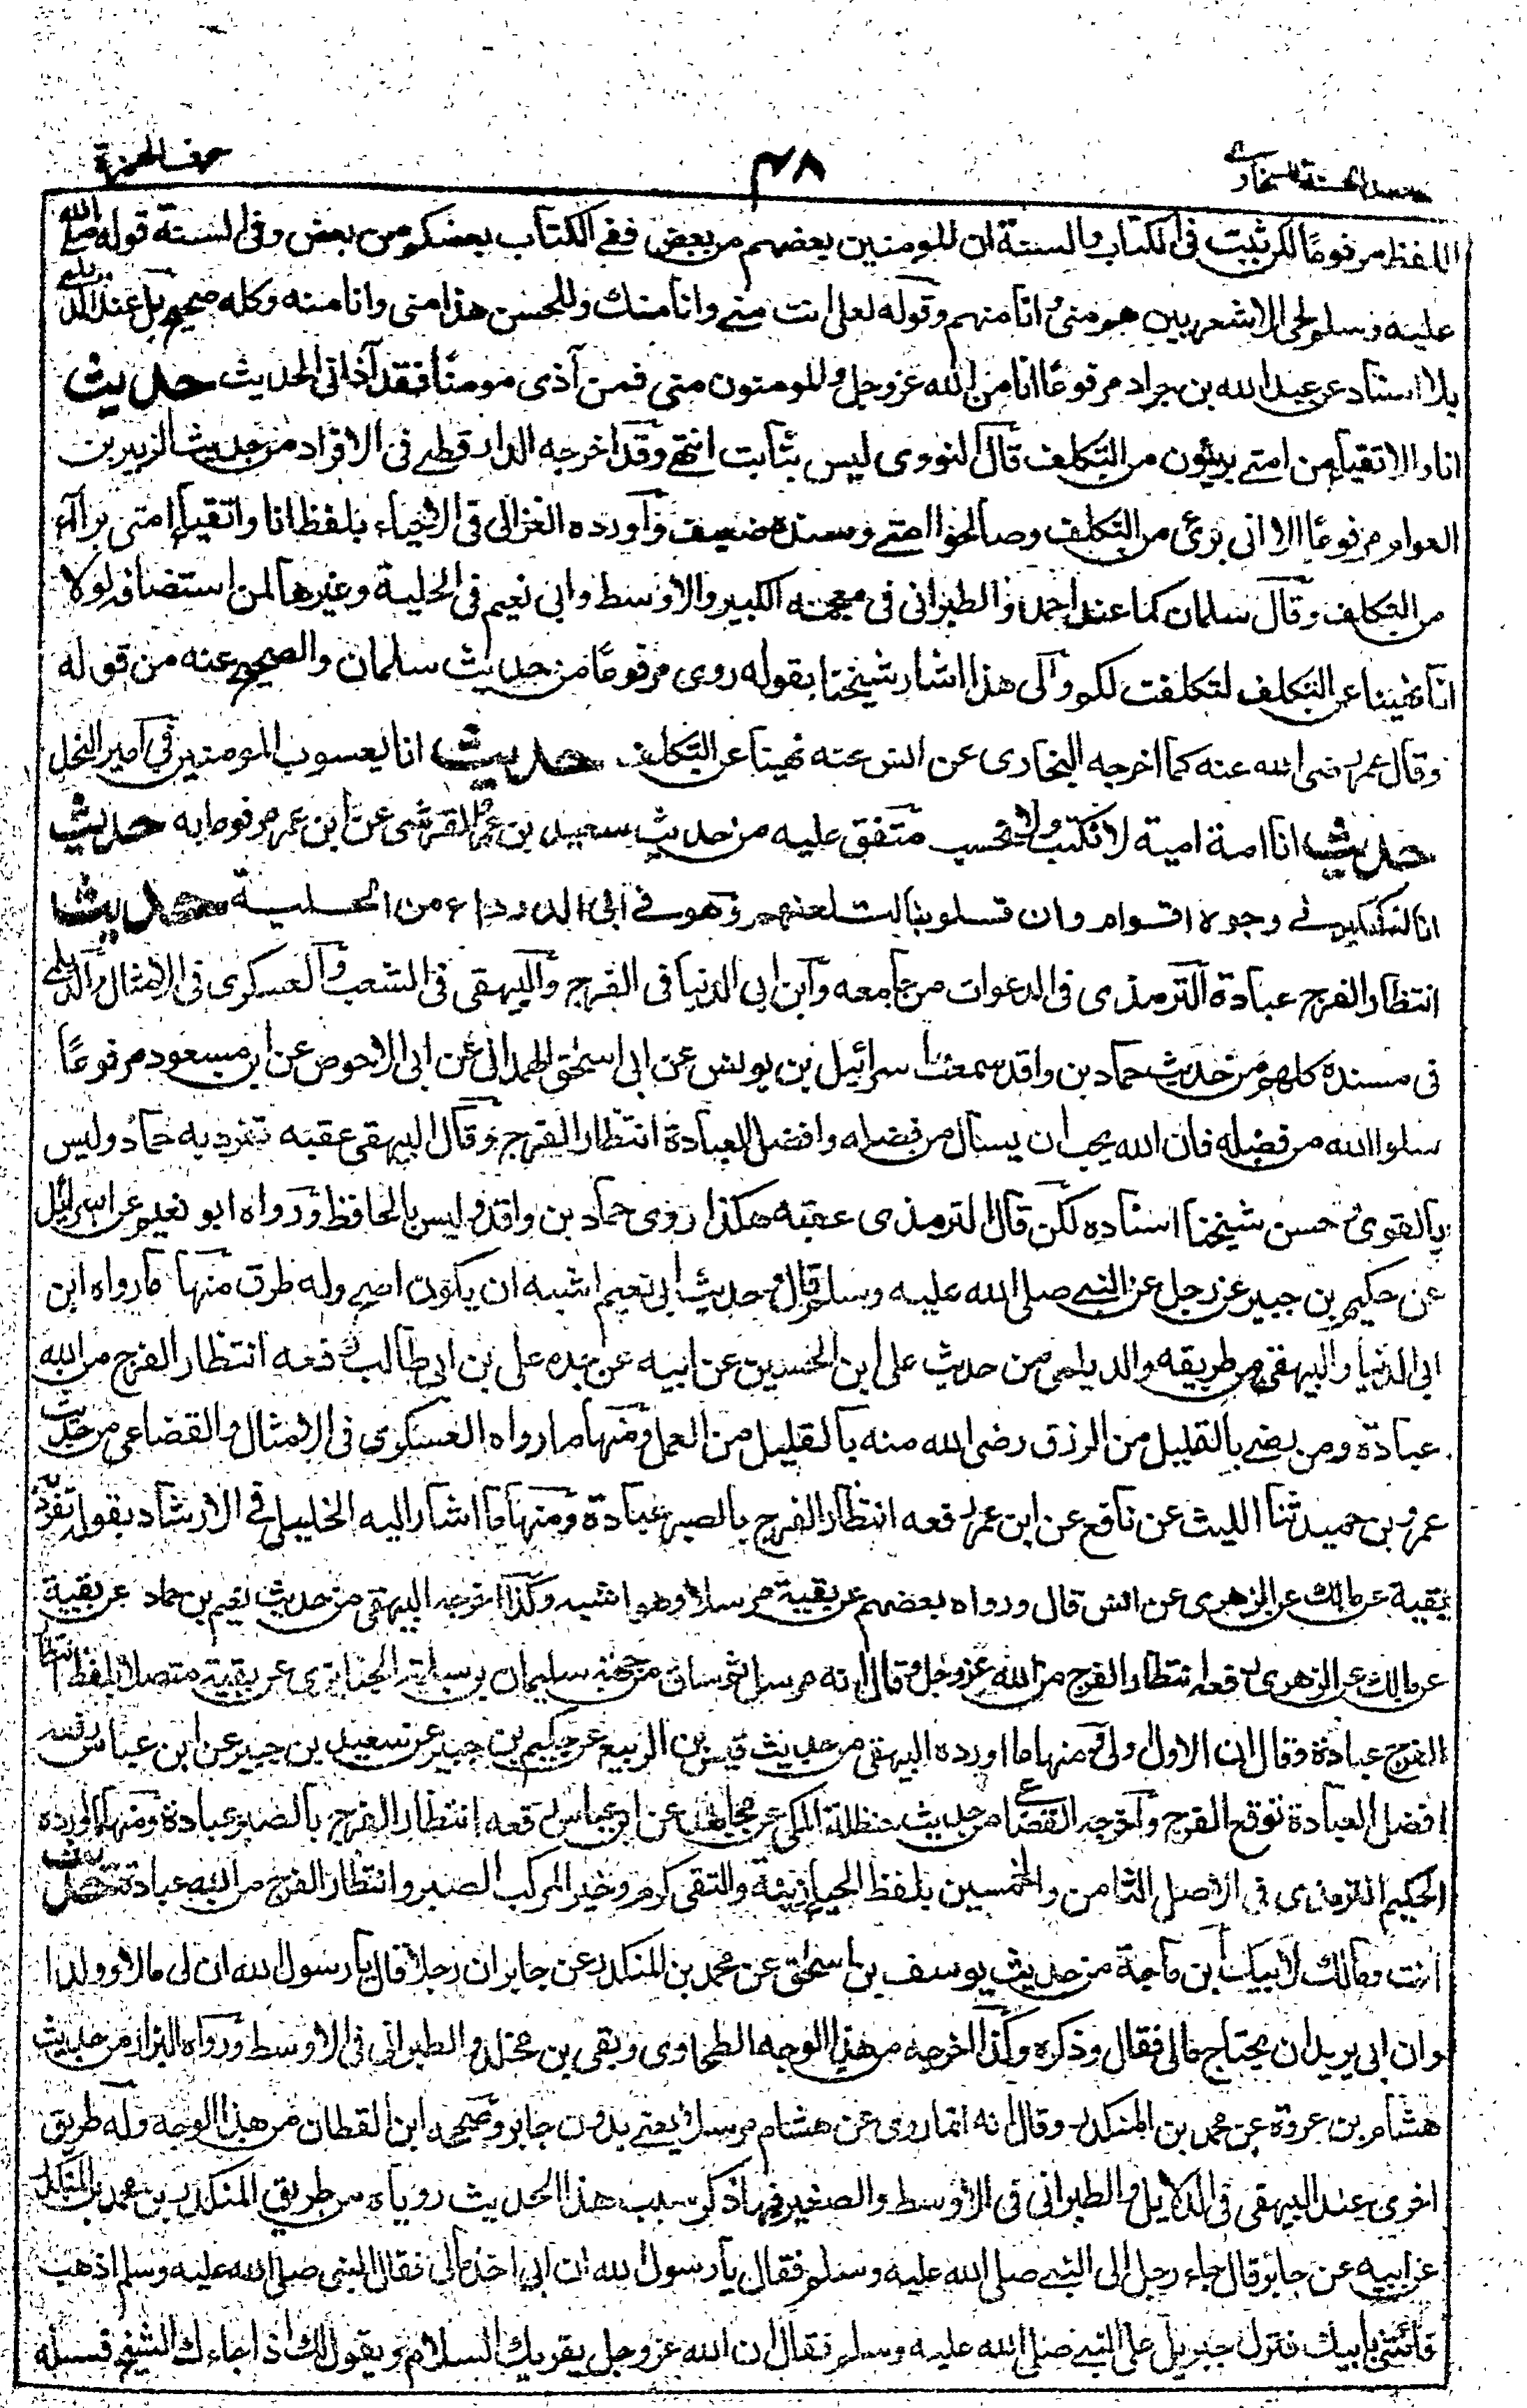 مقاصد الحسنة للسخاوى ٤٨ حرف الهمزة
اللفظ مرفوعًا لكن ثبت فى الكتاب والسنة ان المومنين بعضهم من بعض ففى الكتاب بعضكم من بعض وفى السنة قوله صلى الله
عليه وسلم لحى الاشعريين هم منى وانا منهم وقوله لعلى انت منى وانا منك وللحسن هذا منى وانا منه وكله صحيح بل عند الديلمى
بلا اسناد عن عبد الله بن جراد مرفوعًا انا من الله عز وجل والمومنون منى فمن آذى مومنًا فقد آذانى الحديث حديث
انا والاتقياء من امتى بريئون من التكلف قال النووى ليس بثابت انتهى وقد اخرجه الدارقطنى فى الافراد من حديث الزبير بن
العوام مرفوعًا الا انى برئ من التكلف وصالحوا امتى وسنده ضعيف وآورده الغزالى فى الاحياء بلفظ انا واتقياء امتى برآء
من التكلف وقال سلمان كما عند احمد والطبرانى فى معجمه الكبير والاوسط وابى نعيم فى الحلية وغيرها لمن استضافه لولا
انا نهينا عن التكلف لتكلفت لكم والى هذا اشار شيخنا بقوله روى مرفوعًا من حديث سلمان والصحيح عنه من قوله
وقال عمر رضى الله عنه كما اخرجه البخارى عن انس عنه نهينا عن التكلف حديث انا يعسوب المومنين فى امير النحل
حديث انا امة امية لا نكتب ولا نحسب متفق عليه من حديث سعيد بن عمرو القرشى عن ابن عمر مرفوعا به حديث
انا لنكشر فى وجوه اقوام وان قلوبنا لتلعنهم وهو فى ابى الدرداء من الحلية حديث
انتظار الفرج عبادة الترمذى فى الدعوات من جامعه وابن ابى الدنيا فى الفرج والبيهقى فى الشعب والعسكرى فى الامثال والديلمى
فى مسنده كلهم من حديث حماد بن واقد سمعت اسرائيل بن يونس عن ابى اسحق الهمدانى عن ابى الاحوص عن ابن مسعود مرفوعًا
سلوا الله من فضله فان الله يحب ان يسال من فضله وافضل العبادة انتظار الفرج وقال البيهقى عقبه تفرد به حماد وليس
بالقوى وحسن شيخنا اسناده لكن قال الترمذى عقبه هكذا روى حماد بن واقد وليس بالحافظ ورواه ابو نعيم عن اسرائيل
عن حكيم بن جبير عن رجل عن النبى صلى الله عليه وسلم قال وحديث ابى نعيم اشبه ان يكون اصح وله طرق منها ما رواه ابن
ابى الدنيا والبيهقى من طريقه والديلمى من حديث على ابن الحسين عن ابيه عن جده على بن ابى طالب رفعه انتظار الفرج من الله
عبادة ومن رضى بالقليل من الرزق رضى الله منه بالقليل من العمل ومنها ما رواه العسكرى فى الامثال والقضاعى من حديث
عمرو بن حميد ثنا الليث عن نافع عن ابن عمر رفعه انتظار الفرج بالصبر عبادة ومنها ما اشار اليه الخليلى فى الارشاد بقوله تفرد
بقية عن مالك عن الزهرى عن انس قال ورواه بعضهم عن بقية مرسلا وهو اشبه وكذا اخرجه البيهقى من حديث نعيم بن حماد عن بقية
عن مالك عن الزهرى رفعه انتظار الفرج من الله عز وجل وقال انه مرسل ثم ساق من جهة سليمان بن سلمة الخبائرى عن بقية متصلا بلفظ انتظار
الفرج عبادة وقال ان الاول اولى ومنها ما اورده البيهقى من حديث قيس بن الربيع عن حكيم بن جبير عن سعيد بن جبير عن ابن عباس رفعه
افضل العبادة توقع الفرج واخرجه القضاعى من حديث حنظلة المكى عن مجاهد عن ابن عباس رفعه انتظار الفرج بالصبر عبادة ومنها ما اورده
الحكيم الترمذى فى الاصل الثامن والخمسين بلفظ الحياء زينة والتقى كرم وخير المركب الصبر وانتظار الفرج من الله عبادة حديث
انت ومالك لابيك ابن ماجة من حديث يوسف بن اسحق عن محمد بن المنكدر عن جابر ان رجلا قال يا رسول الله ان لى مالا وولدا
وان ابى يريد ان يجتاح مالى فقال وذكره وكذا اخرجه من هذا الوجه الطحاوى وبقى بن مخلد والطبرانى فى الاوسط ورواه البزار من حديث
هشام بن عروة عن محمد بن المنكدر وقال انه انما روى عن هشام مرسلا يعنى بدون جابر وصححه ابن القطان من هذا الوجه وله طريق
اخرى عند البيهقى فى الدلايل والطبرانى فى الاوسط والصغير فيها ذكر سبب هذا الحديث روياه من طريق المنكدر بن محمد بن المنكدر
عن ابيه عن جابر قال جاء رجل الى النبى صلى الله عليه وسلم فقال يا رسول الله ان ابى اخذ مالى فقال النبى صلى الله عليه وسلم اذهب
فائتنى بابيك فنزل جبريل على النبى صلى الله عليه وسلم فقال ان الله عز وجل يقريك السلام ويقول لك اذا جاءك الشيخ فسله